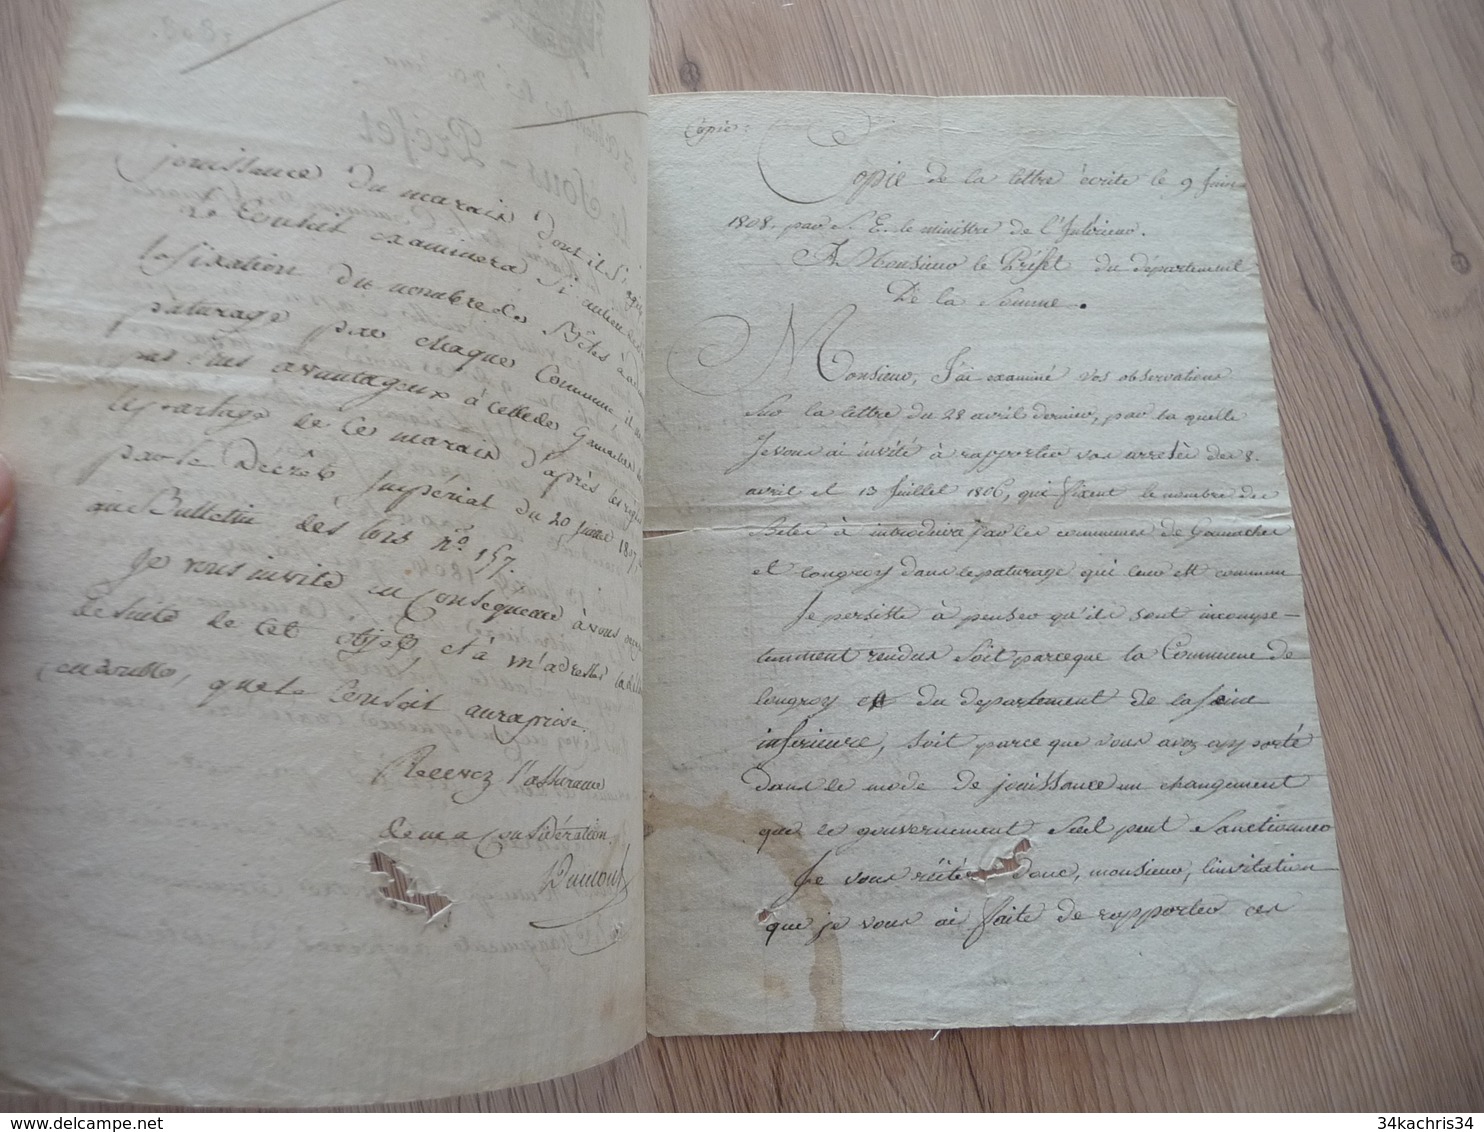 jouissance du marais dont il s'agit
Le Conseil examinera si au lieu de
la fixation du nombre des Bêtes à
paturage par chaque Commune, il
pas plus avantageux à celle de Gamaches
le partage de ce marais d'après les règles
par le Décrêt Impérial du 20 Juillet 1807,
au Bulletin des lois N.o 157.
Je vous invite en Conséquence à vous
de suite de cet objet, et à m'adresser la
en double, que le Conseil aura prise.
Recevez l'assurance
de ma Considération.
Dumont
Préfet
Sous-
Copie:
Copie de la lettre écrite le 9 Juin
1808, par S. E. le ministre de l'Intérieur.
A Monsieur le Préfet du département
De la Somme.
Monsieur, J'ai examiné vos observations
Sur la lettre du 28 avril dernier, par la quelle
Je vous ai invité à rapporter vos arretés des 8.
avril et 13 Juillet 1806, qui fixent le nombre des
Betes à introduire par les communes de Gamaches
et Longroy dans le paturage qui leur est commun
Je persiste à penser qu'ils sont incompe-
temment rendus soit parceque la Commune de
Longroy est du département de la Seine
inférieure, soit parce que vous avez apporté
dans le mode de jouissance un changement
que le gouvernement seul peut sanctionner
Je vous réitère donc, monsieur, l'invitation
que je vous ai faite de rapporter ces
34kachris34